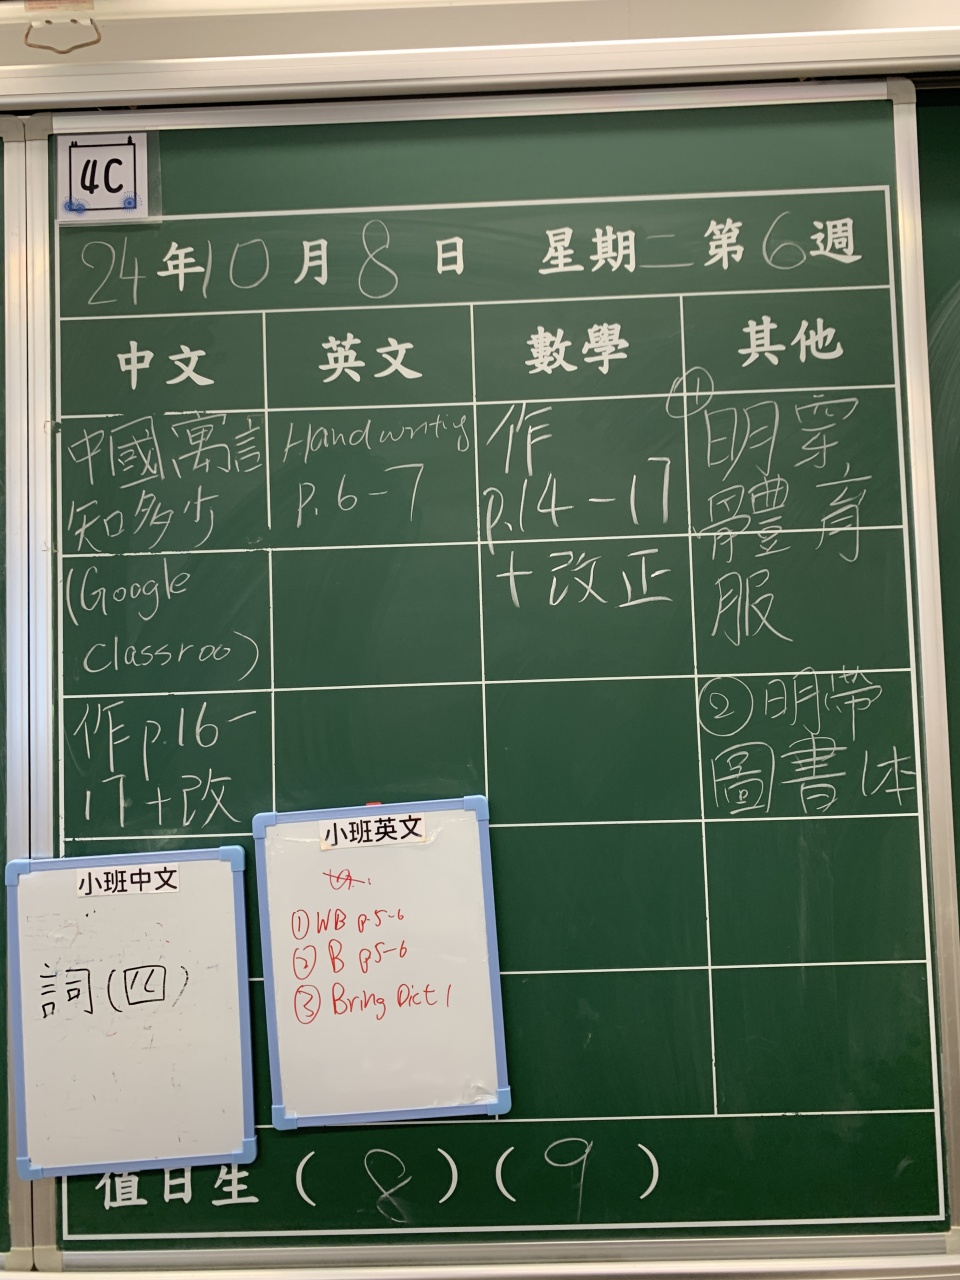 4C
24年10月8日 星期二第6週
中文 英文 數學 其他
中國寓言
知多少
(Google
Classroo)
作p.16-
17+改
Handwriting
p.6-7
作
p.14-17
+改正
①明穿
體育
服
②明帶
圖書
小班中文
詞(四)
小班英文
①WB p.5-6
②B p5-6
③Bring Dict 1
值日生(8)(9)